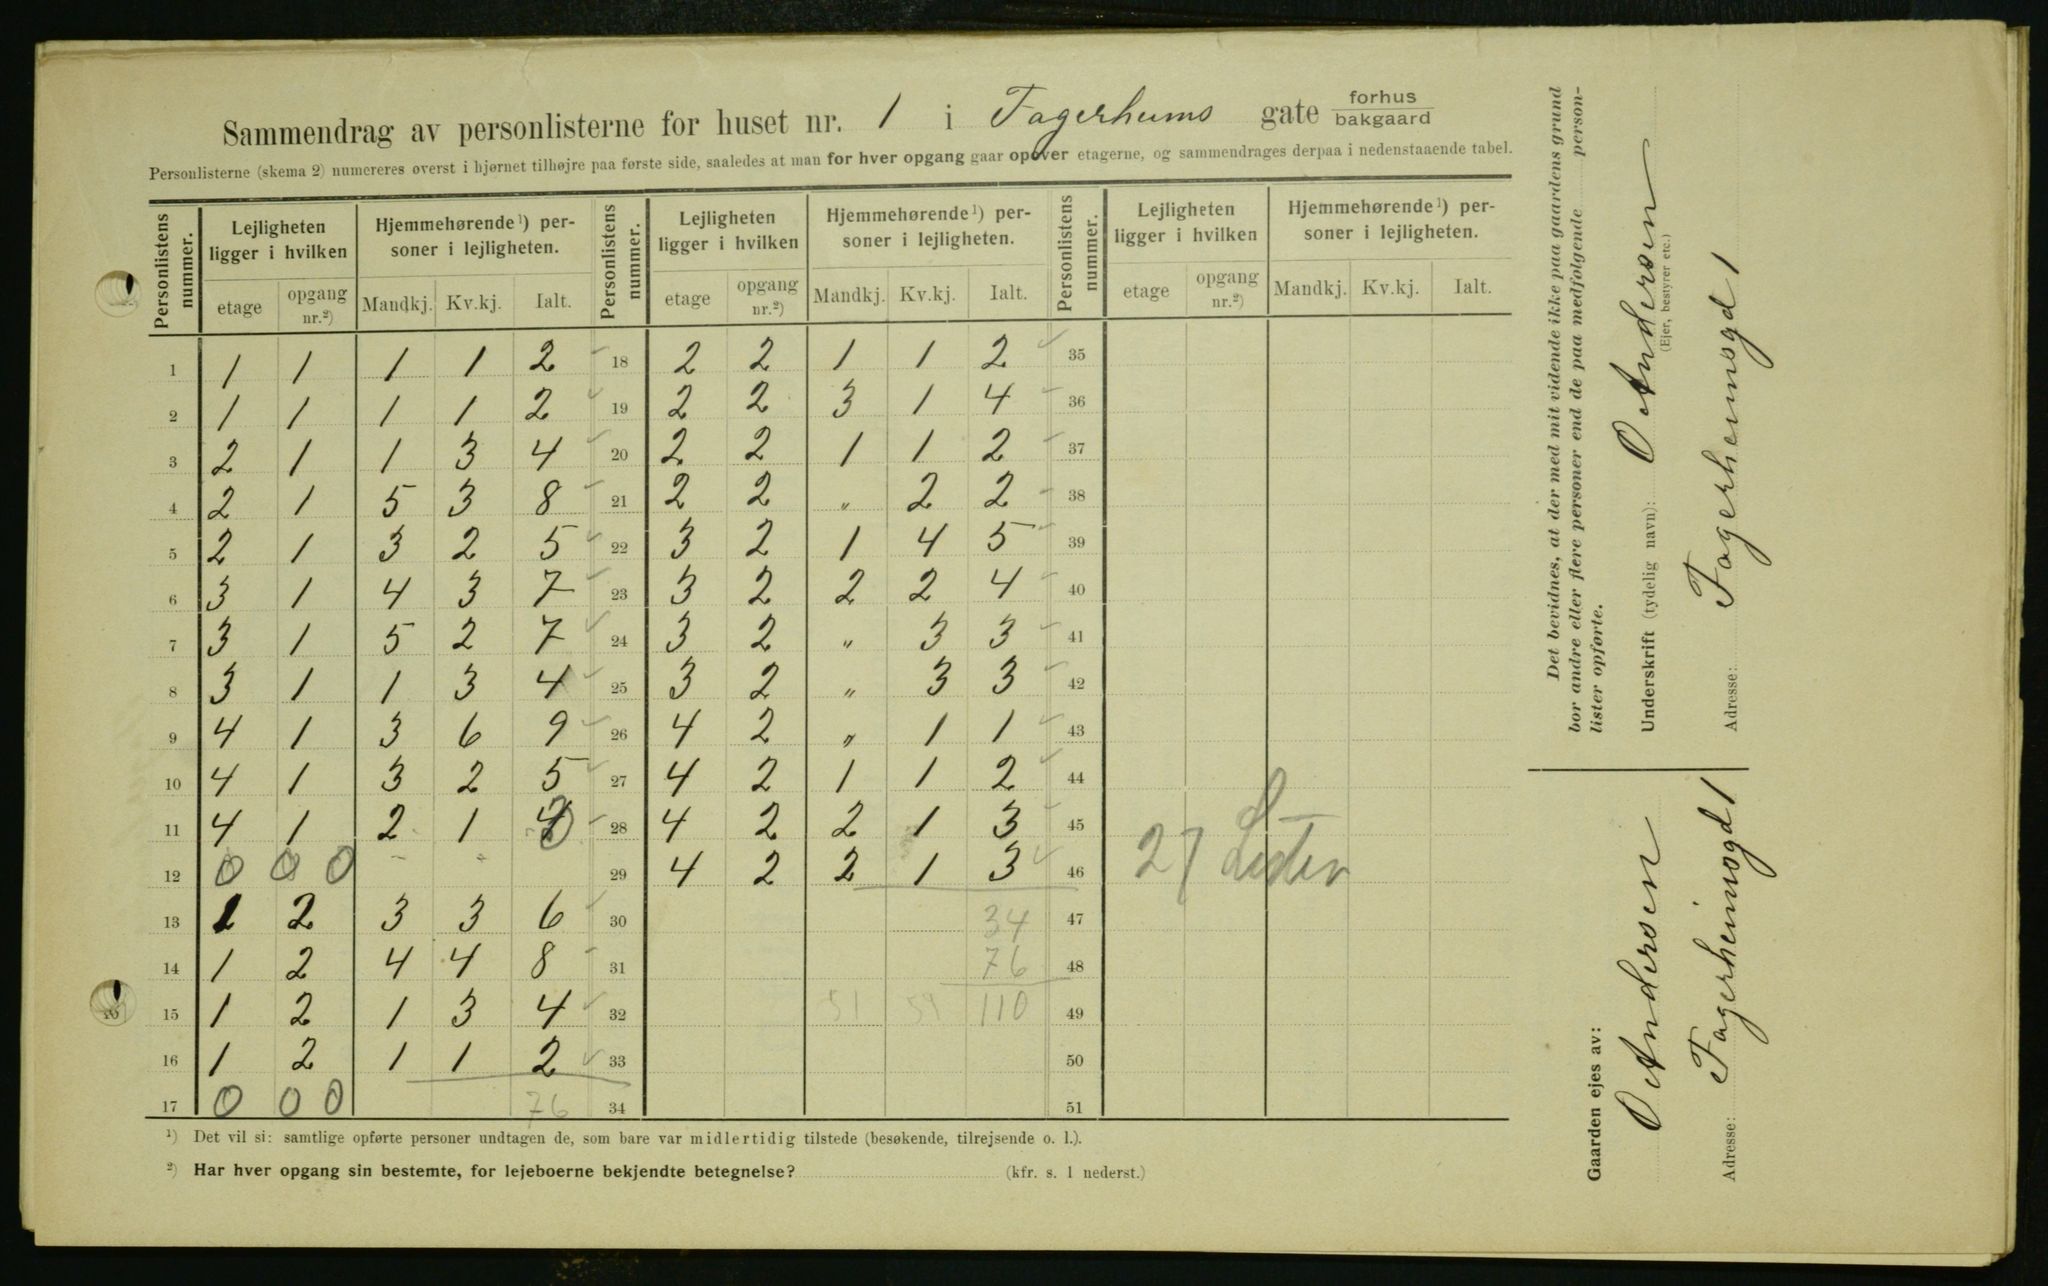 Sammendrag av personlisterne for huset nr. 1 i Fagerheims gate forhus / bakgaard
Personlisterne (skema 2) numereres øverst i hjørnet tilhøjre paa første side, saaledes at man for hver opgang gaar opover etagerne, og sammendrages derpaa i nedenstaaende tabel.
Personlistens nummer. | Lejligheten ligger i hvilken | Hjemmehørende ¹) personer i lejligheten. | Personlistens nummer. | Lejligheten ligger i hvilken | Hjemmehørende ¹) personer i lejligheten. | Personlistens nummer. | Lejligheten ligger i hvilken | Hjemmehørende ¹) personer i lejligheten.
etage | opgang nr.²) | Mandkj. | Kv.kj. | Ialt. | etage | opgang nr.²) | Mandkj. | Kv.kj. | Ialt. | etage | opgang nr.²) | Mandkj. | Kv.kj. | Ialt.
1 | 1 | 1 | 1 | 1 | 2 | 18 | 2 | 2 | 1 | 1 | 2 | 35
2 | 1 | 1 | 1 | 1 | 2 | 19 | 2 | 2 | 3 | 1 | 4 | 36
3 | 2 | 1 | 1 | 3 | 4 | 20 | 2 | 2 | 1 | 1 | 2 | 37
4 | 2 | 1 | 5 | 3 | 8 | 21 | 2 | 2 | „ | 2 | 2 | 38
5 | 2 | 1 | 3 | 2 | 5 | 22 | 3 | 2 | 1 | 4 | 5 | 39
6 | 3 | 1 | 4 | 3 | 7 | 23 | 3 | 2 | 2 | 2 | 4 | 40
7 | 3 | 1 | 5 | 2 | 7 | 24 | 3 | 2 | „ | 3 | 3 | 41
8 | 3 | 1 | 1 | 3 | 4 | 25 | 3 | 2 | „ | 3 | 3 | 42
9 | 4 | 1 | 3 | 6 | 9 | 26 | 4 | 2 | „ | 1 | 1 | 43
10 | 4 | 1 | 3 | 2 | 5 | 27 | 4 | 2 | 1 | 1 | 2 | 44
11 | 4 | 1 | 2 | 1 | 3 | 28 | 4 | 2 | 2 | 1 | 3 | 45
12 | 0 | 0 | 0 | - | - | 29 | 4 | 2 | 2 | 1 | 3 | 46 | 27 Lister
13 | 1 | 2 | 3 | 3 | 6 | 30 | 34 | 47
14 | 1 | 2 | 4 | 4 | 8 | 31 | 76 | 48
15 | 1 | 2 | 1 | 3 | 4 | 32 | 51 | 59 | 110 | 49
16 | 1 | 2 | 1 | 1 | 2 | 33 | 50
17 | 0 | 0 | 0 | 76 | 34 | 51
¹) Det vil si: samtlige opførte personer undtagen de, som bare var midlertidig tilstede (besøkende, tilrejsende o. l.).
²) Har hver opgang sin bestemte, for lejeboerne bekjendte betegnelse? (kfr. s. 1 nederst.)
Det bevidnes, at der med mit vidende ikke paa gaardens grund
bor andre eller flere personer end de paa medfølgende person-
lister opførte.
Underskrift (tydelig navn): O Andersen
(Ejer, bestyrer etc.)
Adresse: Fagerheimsgd 1
Gaarden ejes av: O Andersen
Adresse: Fagerheimsgd 1